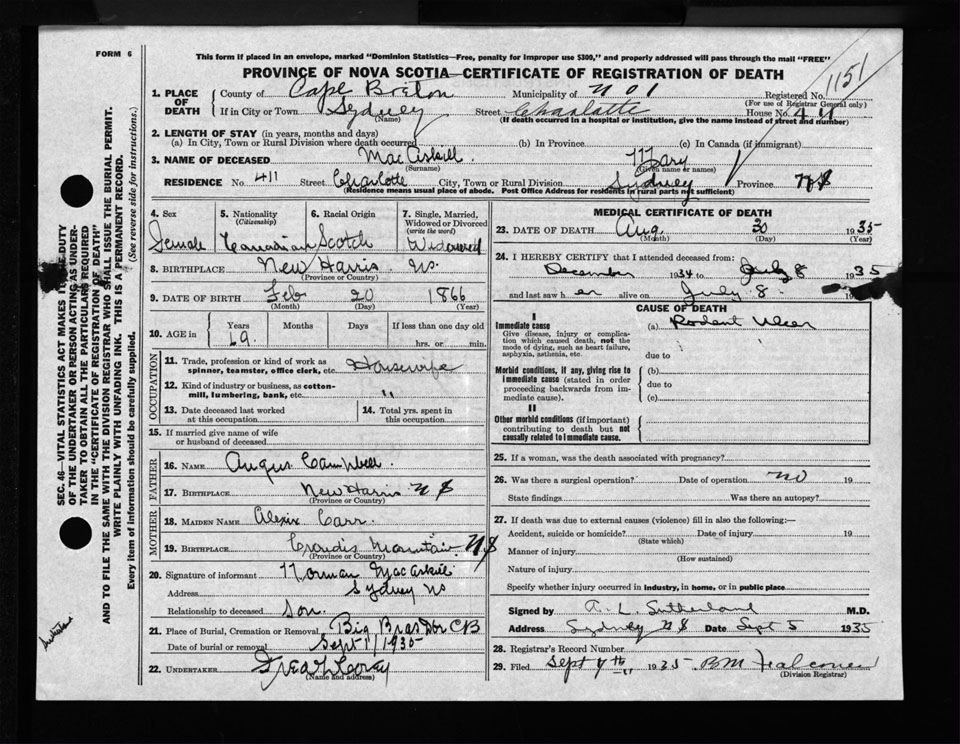 FORM 6
This form if placed in an envelope, marked "Dominion Statistics—Free, penalty for improper use $300," and properly addressed will pass through the mail "FREE"
PROVINCE OF NOVA SCOTIA—CERTIFICATE OF REGISTRATION OF DEATH
1151
1. PLACE OF DEATH
County of Cape Breton Municipality of No 1 Registered No.
(For use of Registrar General only)
If in City or Town Sydney Street Charlotte House No. 411
(Name) (If death occurred in a hospital or institution, give the name instead of street and number)
2. LENGTH OF STAY (in years, months and days)
(a) In City, Town or Rural Division where death occurred (b) In Province (c) In Canada (if immigrant)
3. NAME OF DECEASED MacAskill Mary
(Surname) (Given name or names)
RESIDENCE No. 411 Street Charlotte City, Town or Rural Division Sydney Province NS
(Residence means usual place of abode. Post Office Address for residents in rural parts not sufficient)
4. Sex 5. Nationality 6. Racial Origin 7. Single, Married, Widowed or Divorced
(Citizenship) (write the word)
Female Canadian Scotch Widowed
8. BIRTHPLACE New Harris NS.
(Province or Country)
9. DATE OF BIRTH Feb 20 1866
(Month) (Day) (Year)
10. AGE in Years Months Days If less than one day old
69 hrs. or min.
OCCUPATION
11. Trade, profession or kind of work as spinner, teamster, office clerk, etc. Housewife
12. Kind of industry or business, as cotton-mill, lumbering, bank, etc. "
13. Date deceased last worked at this occupation 14. Total yrs. spent in this occupation
15. If married give name of wife or husband of deceased
FATHER
16. NAME Angus Campbell
17. BIRTHPLACE New Harris NS
(Province or Country)
MOTHER
18. MAIDEN NAME Carr
19. BIRTHPLACE Mountain NS
(Province or Country)
20. Signature of informant Norman MacAskill
Address Sydney NS
Relationship to deceased Son.
21. Place of Burial, Cremation or Removal Big Bras Dor CB
Date of burial or removal Sept 1/1935
22. UNDERTAKER
(Name and address)
MEDICAL CERTIFICATE OF DEATH
23. DATE OF DEATH Aug. 30 1935
(Month) (Day) (Year)
24. I HEREBY CERTIFY that I attended deceased from:
December 1934 to July 8 1935
and last saw h er alive on July 8. 19
CAUSE OF DEATH
I
Immediate cause (a) Rodent Ulcer
Give disease, injury or complication which caused death, not the mode of dying, such as heart failure, asphyxia, asthenia, etc.
due to
Morbid conditions, if any, giving rise to immediate cause (stated in order proceeding backwards from immediate cause).
(b)
due to
(c)
II
Other morbid conditions (if important) contributing to death but not causally related to immediate cause.
25. If a woman, was the death associated with pregnancy?
26. Was there a surgical operation? Date of operation no 19
State findings Was there an autopsy?
27. If death was due to external causes (violence) fill in also the following:—
Accident, suicide or homicide? Date of injury 19
(State which)
Manner of injury
(How sustained)
Nature of injury
Specify whether injury occurred in industry, in home, or in public place
Signed by A. L. Sutherland M.D.
Address Sydney NS Date Sept 5 1935
28. Registrar's Record Number
29. Filed Sept 9th 1935 BM Falconer
(Division Registrar)
SEC. 46—VITAL STATISTICS ACT MAKES IT THE DUTY
OF THE UNDERTAKER OR PERSON ACTING AS UNDER-
TAKER TO OBTAIN ALL THE PARTICULARS REQUIRED
IN THE "CERTIFICATE OF REGISTRATION OF DEATH"
AND TO FILE THE SAME WITH THE DIVISION REGISTRAR WHO SHALL ISSUE THE BURIAL PERMIT.
WRITE PLAINLY WITH UNFADING INK. THIS IS A PERMANENT RECORD.
Every item of information should be carefully supplied. (See reverse side for instructions.)